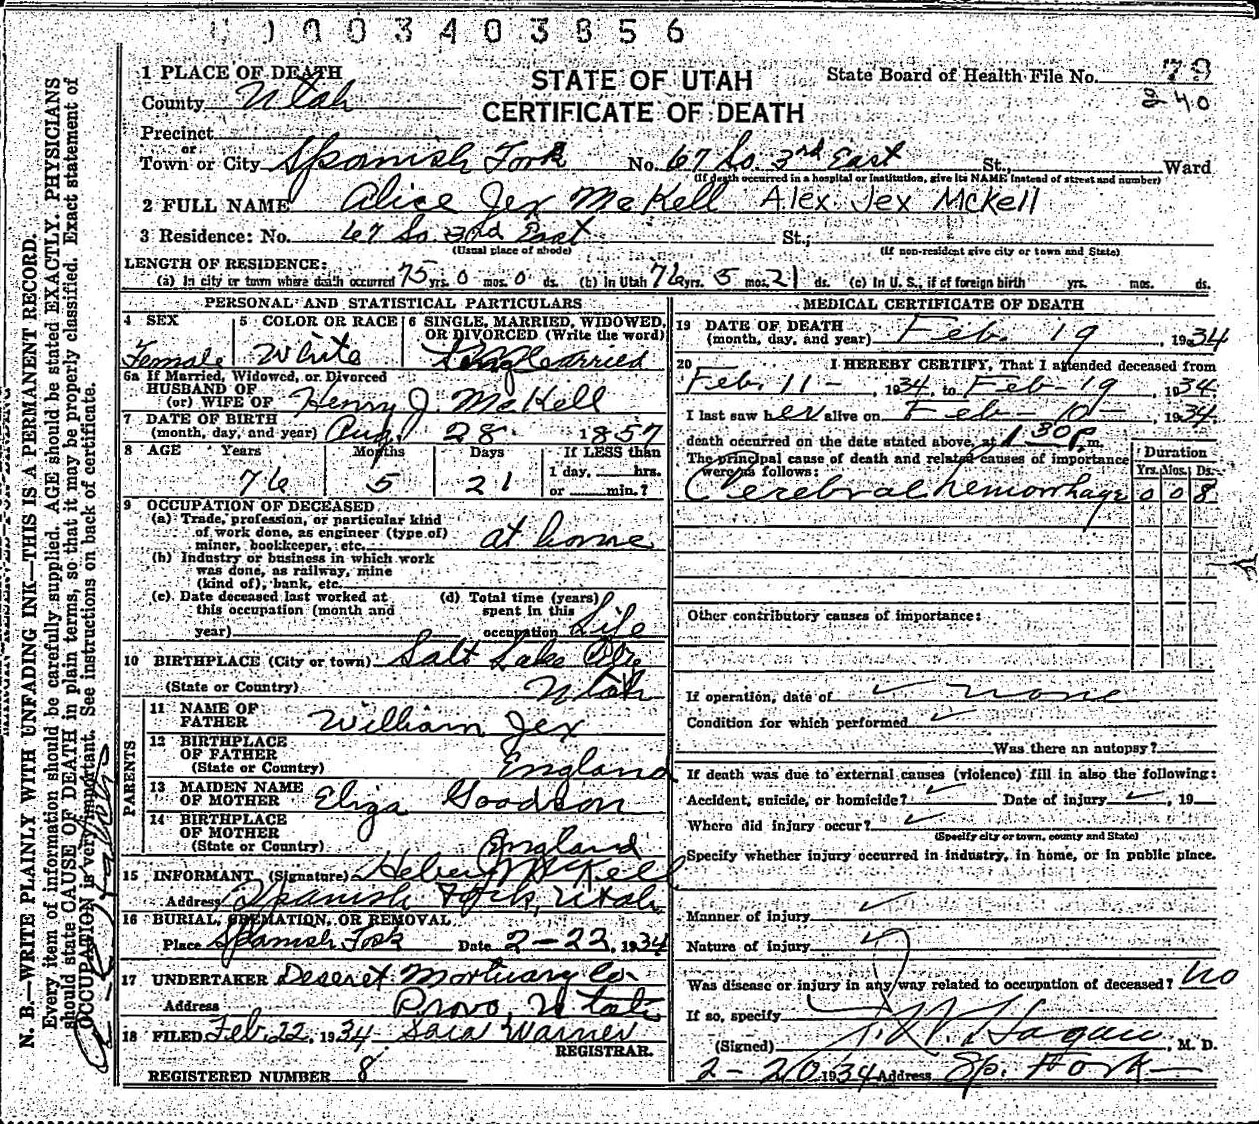 0 0 3 4 0 3 8 5 6
STATE OF UTAH
CERTIFICATE OF DEATH
State Board of Health File No. 79
40
1 PLACE OF DEATH
County Utah
Precinct
or
Town or City Spanish Fork No. 67 So. 3rd East St., Ward
(If death occurred in a hospital or institution, give its NAME instead of street and number)
2 FULL NAME Alice Jex McKell Alex. Jex McKell
3 Residence: No. 67 So 3rd East St.,
(Usual place of abode) (If non-resident give city or town and State)
LENGTH OF RESIDENCE:
(a) In city or town where death occurred 75 yrs. 0 mos. 0 ds. (b) In Utah 76 yrs. 5 mos. 21 ds. (c) In U. S., if of foreign birth yrs. mos. ds.
PERSONAL AND STATISTICAL PARTICULARS
4 SEX
Female
5 COLOR OR RACE
White
6 SINGLE, MARRIED, WIDOWED,
OR DIVORCED (Write the word)
Married
6a If Married, Widowed, or Divorced
HUSBAND OF
(or) WIFE OF Henry J McKell
7 DATE OF BIRTH
(month, day, and year) Aug. 28 1857
8 AGE Years Months Days If LESS than
1 day, hrs.
or min.?
76 5 21
9 OCCUPATION OF DECEASED
(a) Trade, profession, or particular kind
of work done, as engineer (type of)
miner, bookkeeper, etc. at home
(b) Industry or business in which work
was done, as railway, mine
(kind of), bank, etc.
(c) Date deceased last worked at
this occupation (month and
year)
(d) Total time (years)
spent in this
occupation Life
10 BIRTHPLACE (City or town) Salt Lake City
(State or Country) Utah
PARENTS
11 NAME OF
FATHER William Jex
12 BIRTHPLACE
OF FATHER
(State or Country) England
13 MAIDEN NAME
OF MOTHER Eliza Goodson
14 BIRTHPLACE
OF MOTHER
(State or Country) England
15 INFORMANT (Signature) Heber McKell
Address Spanish Fork, Utah
16 BURIAL, CREMATION, OR REMOVAL
Place Spanish Fork Date 2-22, 1934
17 UNDERTAKER Deseret Mortuary Co-
Address Provo, Utah
18 FILED Feb. 22, 1934 Sara Warner
REGISTRAR.
REGISTERED NUMBER 8
MEDICAL CERTIFICATE OF DEATH
19 DATE OF DEATH
(month, day, and year) Feb. 19, 1934
20 I HEREBY CERTIFY, That I attended deceased from
Feb. 11-, 1934, to Feb-19, 1934.
I last saw her alive on Feb- 10-, 1934.
death occurred on the date stated above, at 1 30 P m.
The principal cause of death and related causes of importance
were as follows:
Duration
Yrs. Mos. Ds.
Cerebral hemorrhage 0 0 8
Other contributory causes of importance:
If operation, date of none
Condition for which performed
Was there an autopsy?
If death was due to external causes (violence) fill in also the following:
Accident, suicide, or homicide? Date of injury, 19
Where did injury occur?
(Specify city or town, county and State)
Specify whether injury occurred in industry, in home, or in public place.
Manner of injury
Nature of injury
Was disease or injury in any way related to occupation of deceased? no
If so, specify
(Signed) Hagan, M. D.
2-20 1934 Address Sp. Fork
N. B.—WRITE PLAINLY WITH UNFADING INK—THIS IS A PERMANENT RECORD.
Every item of information should be carefully supplied. AGE should be stated EXACTLY. PHYSICIANS
should state CAUSE OF DEATH in plain terms, so that it may be properly classified. Exact statement of
OCCUPATION is very important. See instructions on back of certificate.